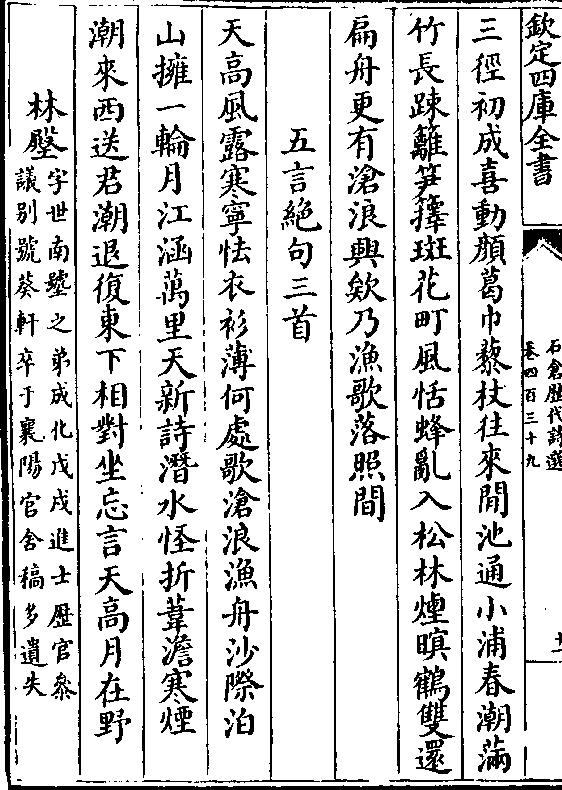 欽定四庫全書
石倉歷代詩選
卷四百三十九
三徑初成喜動顔葛巾藜杖往來閒池通小浦春潮滿
竹長踈籬笋籜斑花町風恬蜂亂入松林煙暝鶴雙還
扁舟更有滄浪興欸乃漁歌落照間
五言絶句三首
天高風露寒寧怯衣衫薄何處歌滄浪漁舟沙際泊
山擁一輪月江涵萬里天新詩潛水怪折葦澹寒煙
潮來西送君潮退復東下相對坐忘言天高月在野
林壂字世南壂之弟成化戊戌進士歴官叅
議别號葵軒卒于襄陽官舍稿多遺失